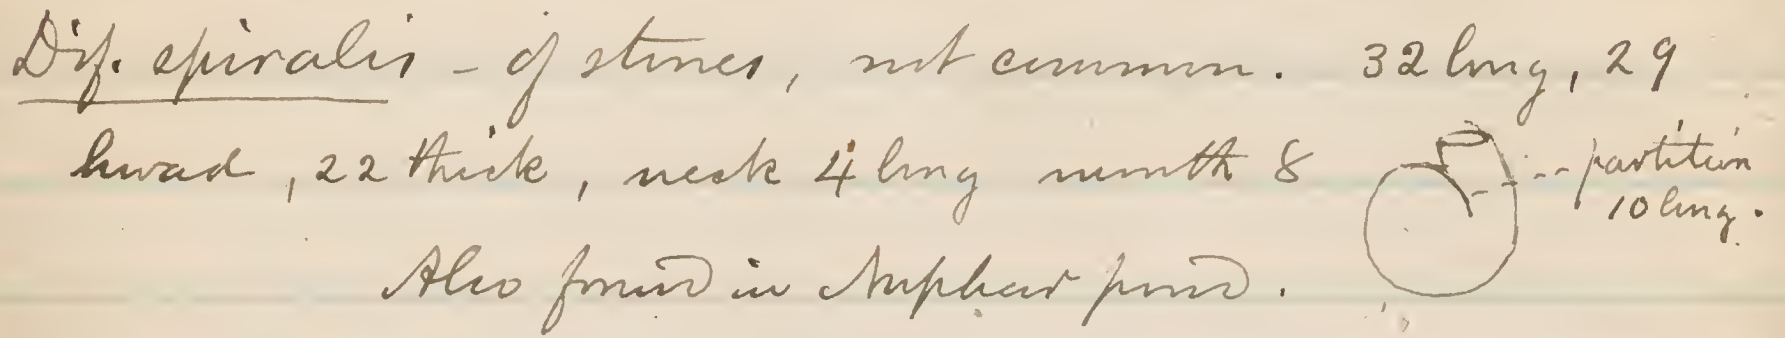 Dif. spiralis - of stones, not common. 32 long, 29
broad, 22 thick, neck 4 long mouth 8
partition
10 long.
Also found in Nuphar pond.